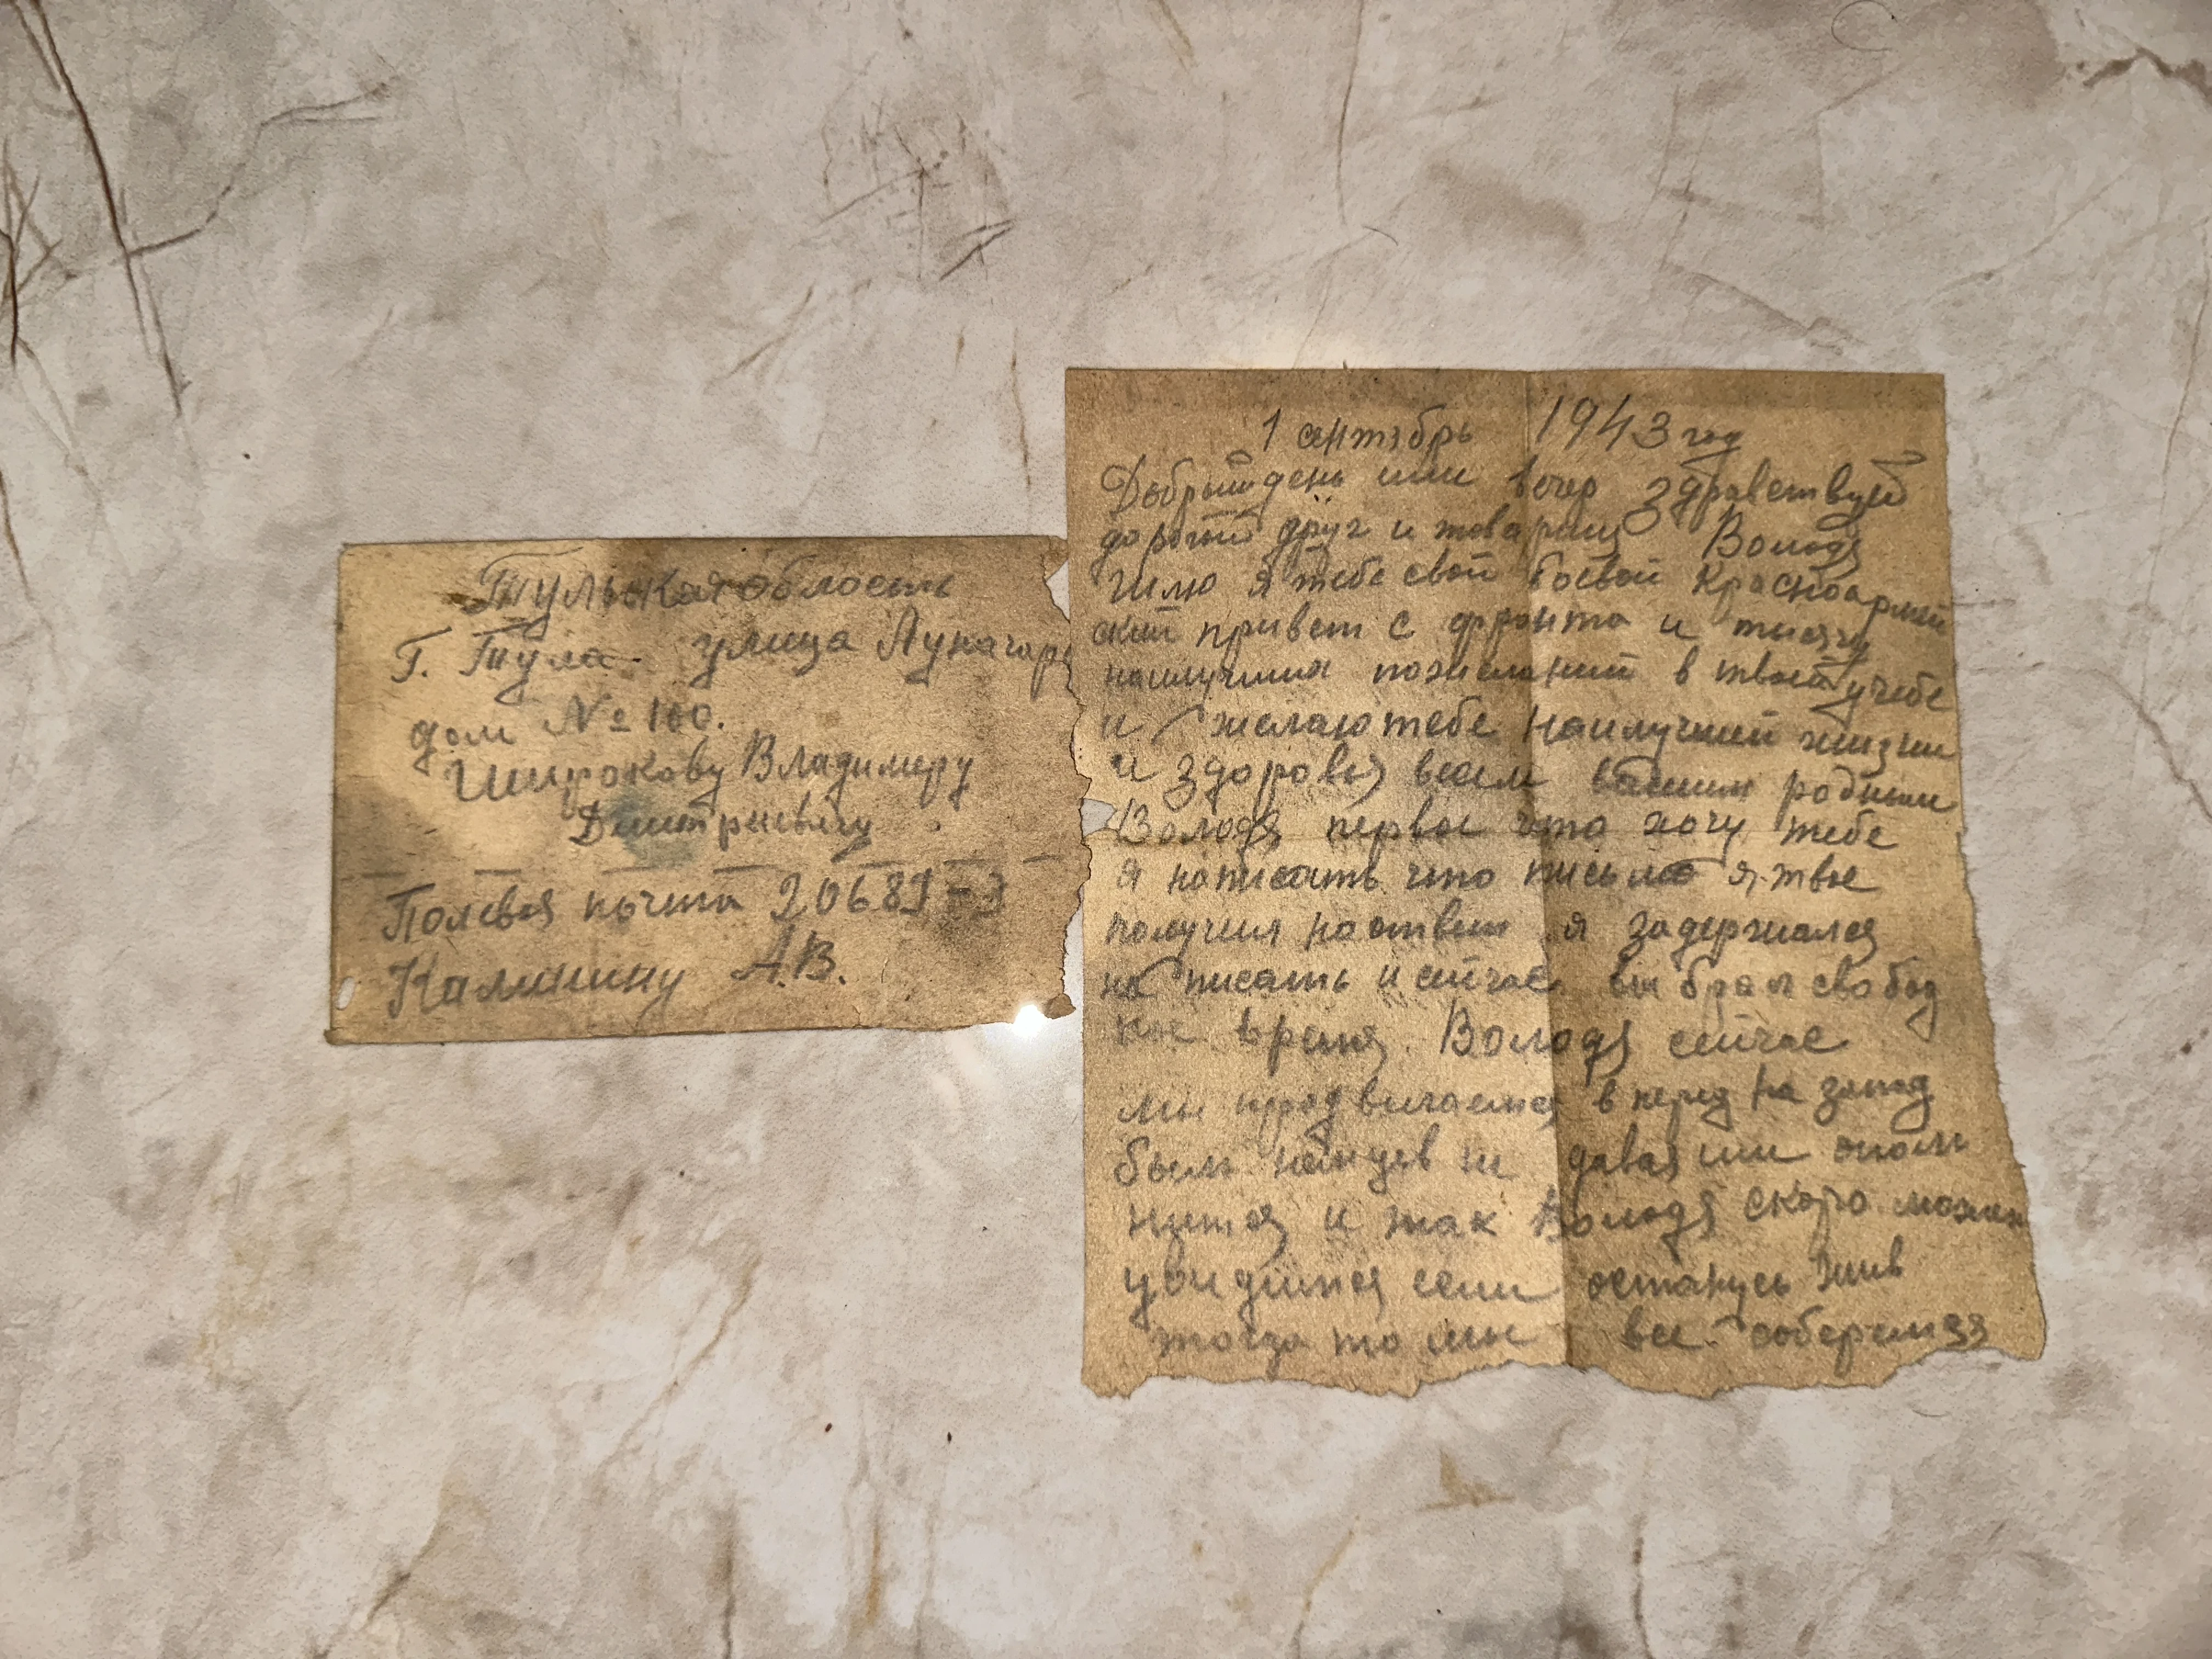 Тульская область
г. Тула улица Луначарс
дом № 100.
Широкову Владимиру
Дмитриевичу
Полевая почта 20689-Э
Калинину А.В.
1 сентябрь 1943 год
Добрый день или вечер здравствуй
дорогой друг и товарищ Володя
Шлю я тебе свой боевой красноармей
ский привет с фронта и тысячу
наилучших пожеланий в твоей учебе
и желаю тебе наилучшей жизни
и здоровья всем вашим родным
Володя первое что хочу тебе
я написать что письмо я твое
получил но ответ я задержался
на писать и сейчас выбрал свобод
ное время. Володя сейчас
мы продвигаемся в перед на запад
бьем немцев не давая им опом
нится и так Володя скоро может
увидимся если останусь жив
тогда то мы все соберемся